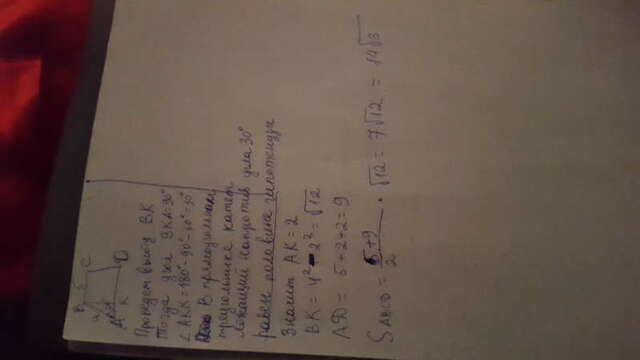 B 5 C
4
A K D
Проведем высоту BK
Тогда угол BKA=90°
∠AKK=180°-90°-60°=30°
В прямоугольном
треугольнике катет
лежащий напротив угла 30°
равен половине гипотенузы
Значит AK=2
BK=4²-2²=√12
AD=5+2+2=9
S ABCD = 5+9/2 · √12=7√12 = 14√3